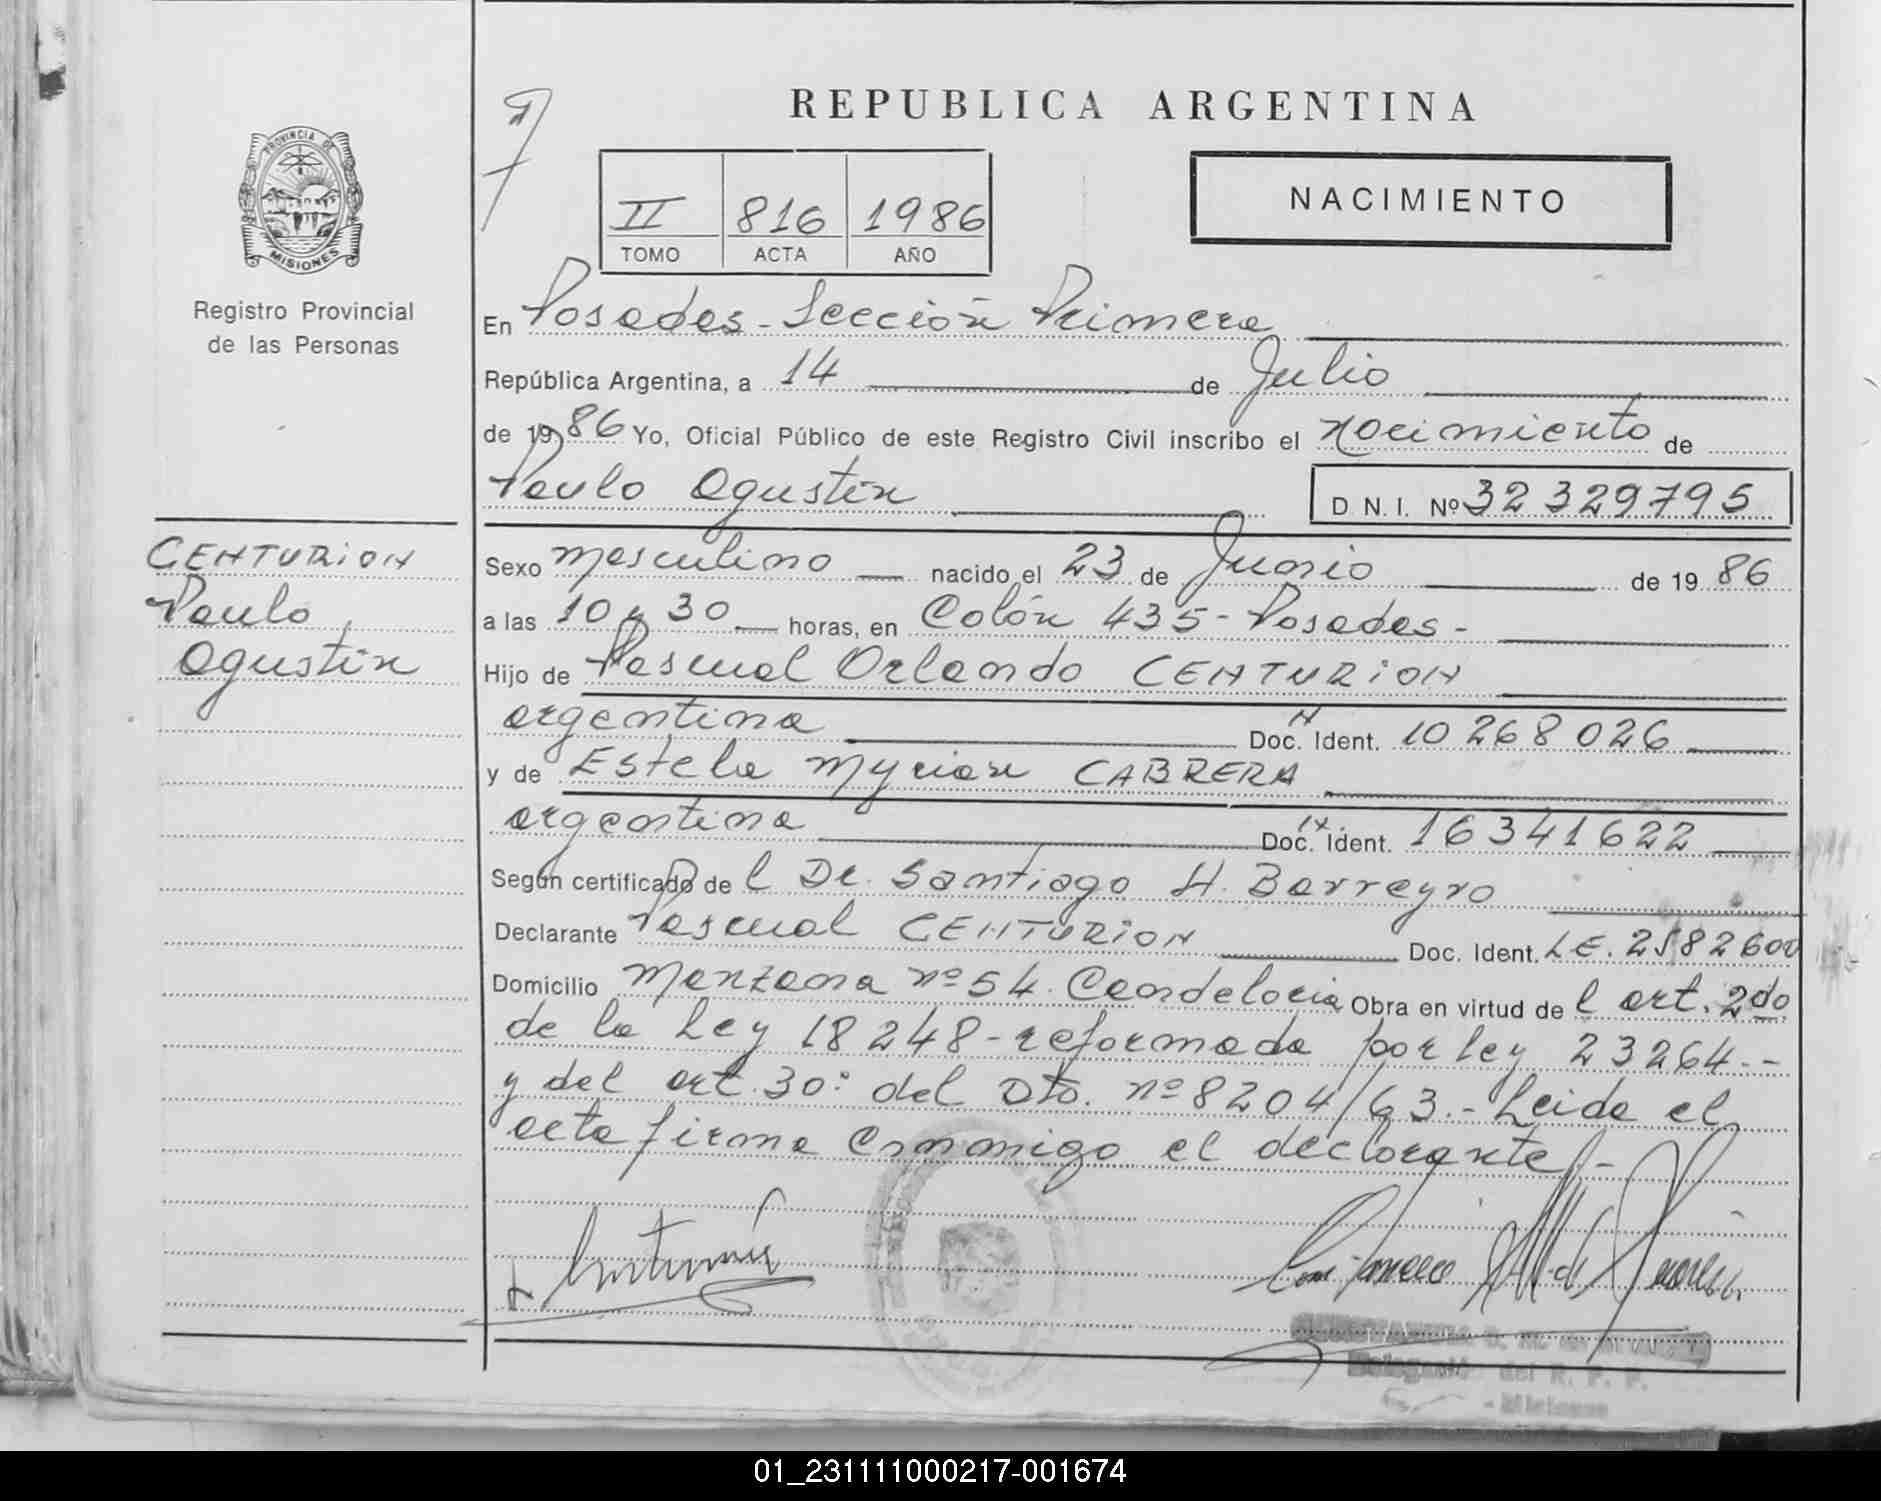 REPUBLICA ARGENTINA
PROVINCIA DE
MISIONES
Registro Provincial
de las Personas
II 816 1986
TOMO ACTA AÑO
NACIMIENTO
En Posadas - Sección Primera
República Argentina, a 14 de Julio
de 1986 Yo, Oficial Público de este Registro Civil inscribo el nacimiento de
Paulo Agustín
D N. I. Nº 32 329795
CENTURION
Paulo
Agustín
Sexo masculino nacido el 23 de Junio de 19 86
a las 10 y 30 horas, en Colón 435 - Posadas -
Hijo de Pascual Orlando CENTURION
argentina Doc. Ident. 10 268 026
y de Estela Myrian CABRERA
argentina Doc. Ident. 16341622
Según certificado de l Dr. Santiago H. Barreyro
Declarante Pascual CENTURION Doc. Ident. LE. 2582600
Domicilio Manzana nº 54. Candelaria Obra en virtud de l art. 2do
de la Ley 18248 - reformada por ley 23264. -
y del art. 30: del Dto. nº 8204/63. - Leida el
acta firma conmigo el declarante. -
Delegación del R. P. P.
- Misiones
01_231111000217-001674